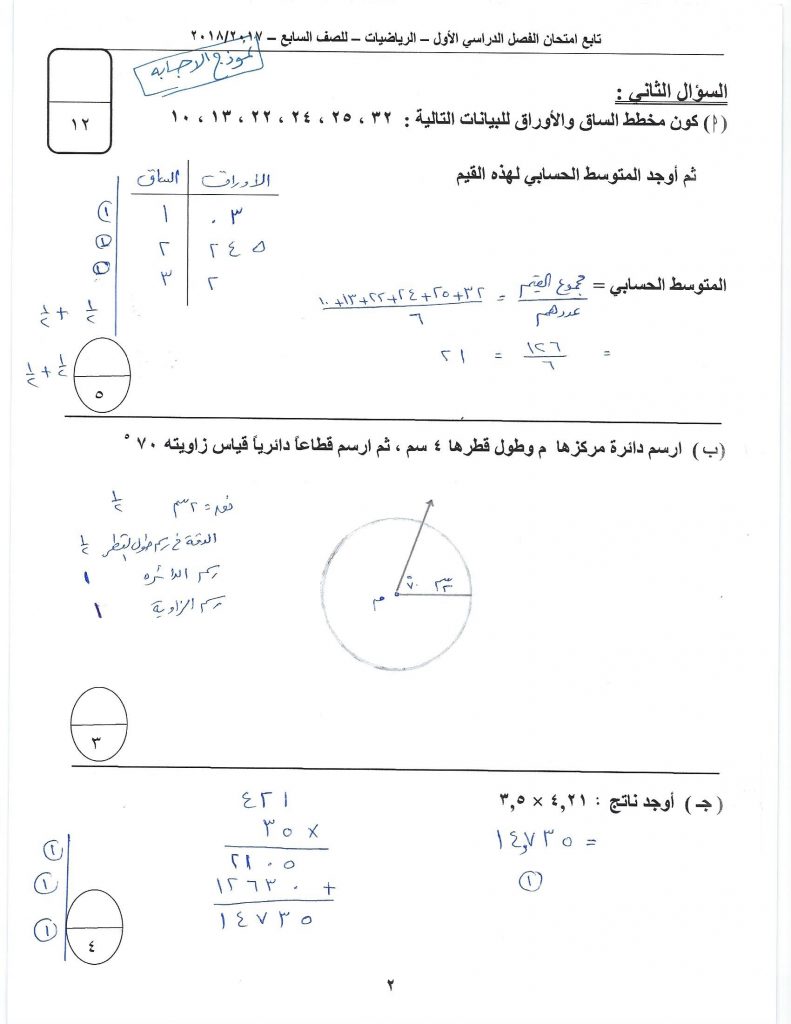 تابع امتحان الفصل الدراسي الأول – الرياضيات – للصف السابع – ٢٠١٧/٢٠١٨
نموذج الاجابه
١٢
السؤال الثاني :
(أ) كون مخطط الساق والأوراق للبيانات التالية : ٣٢ ، ٢٥ ، ٢٤ ، ٢٢ ، ١٣ ، ١٠
ثم أوجد المتوسط الحسابي لهذه القيم
الساق الأوراق
١ ٠ ٣ ①
٢ ٢ ٤ ٥ ①
٣ ٢ ①
المتوسط الحسابي = مجموع القيم / عددهم = ١٠+١٣+٢٢+٢٤+٢٥+٣٢ / ٦
½ + ½
= ١٢٦ / ٦ = ٢١
½ + ½
٥
(ب) ارسم دائرة مركزها م وطول قطرها ٤ سم ، ثم ارسم قطاعاً دائرياً قياس زاويته ٧٠ °
نصه = ٢ سم ½
الدقة في رسم طول القطر ½
رسم الدائره ١
رسم الزاوية ١
م ٧٠° ٢سم
٣
(جـ) أوجد ناتج : ٤,٢١ × ٣,٥
= ١٤,٧٣٥
①
٤٢١
٣٥ ×
٢١٠٥
١٢٦٣٠ +
١٤٧٣٥
②
①
①
٤
٢